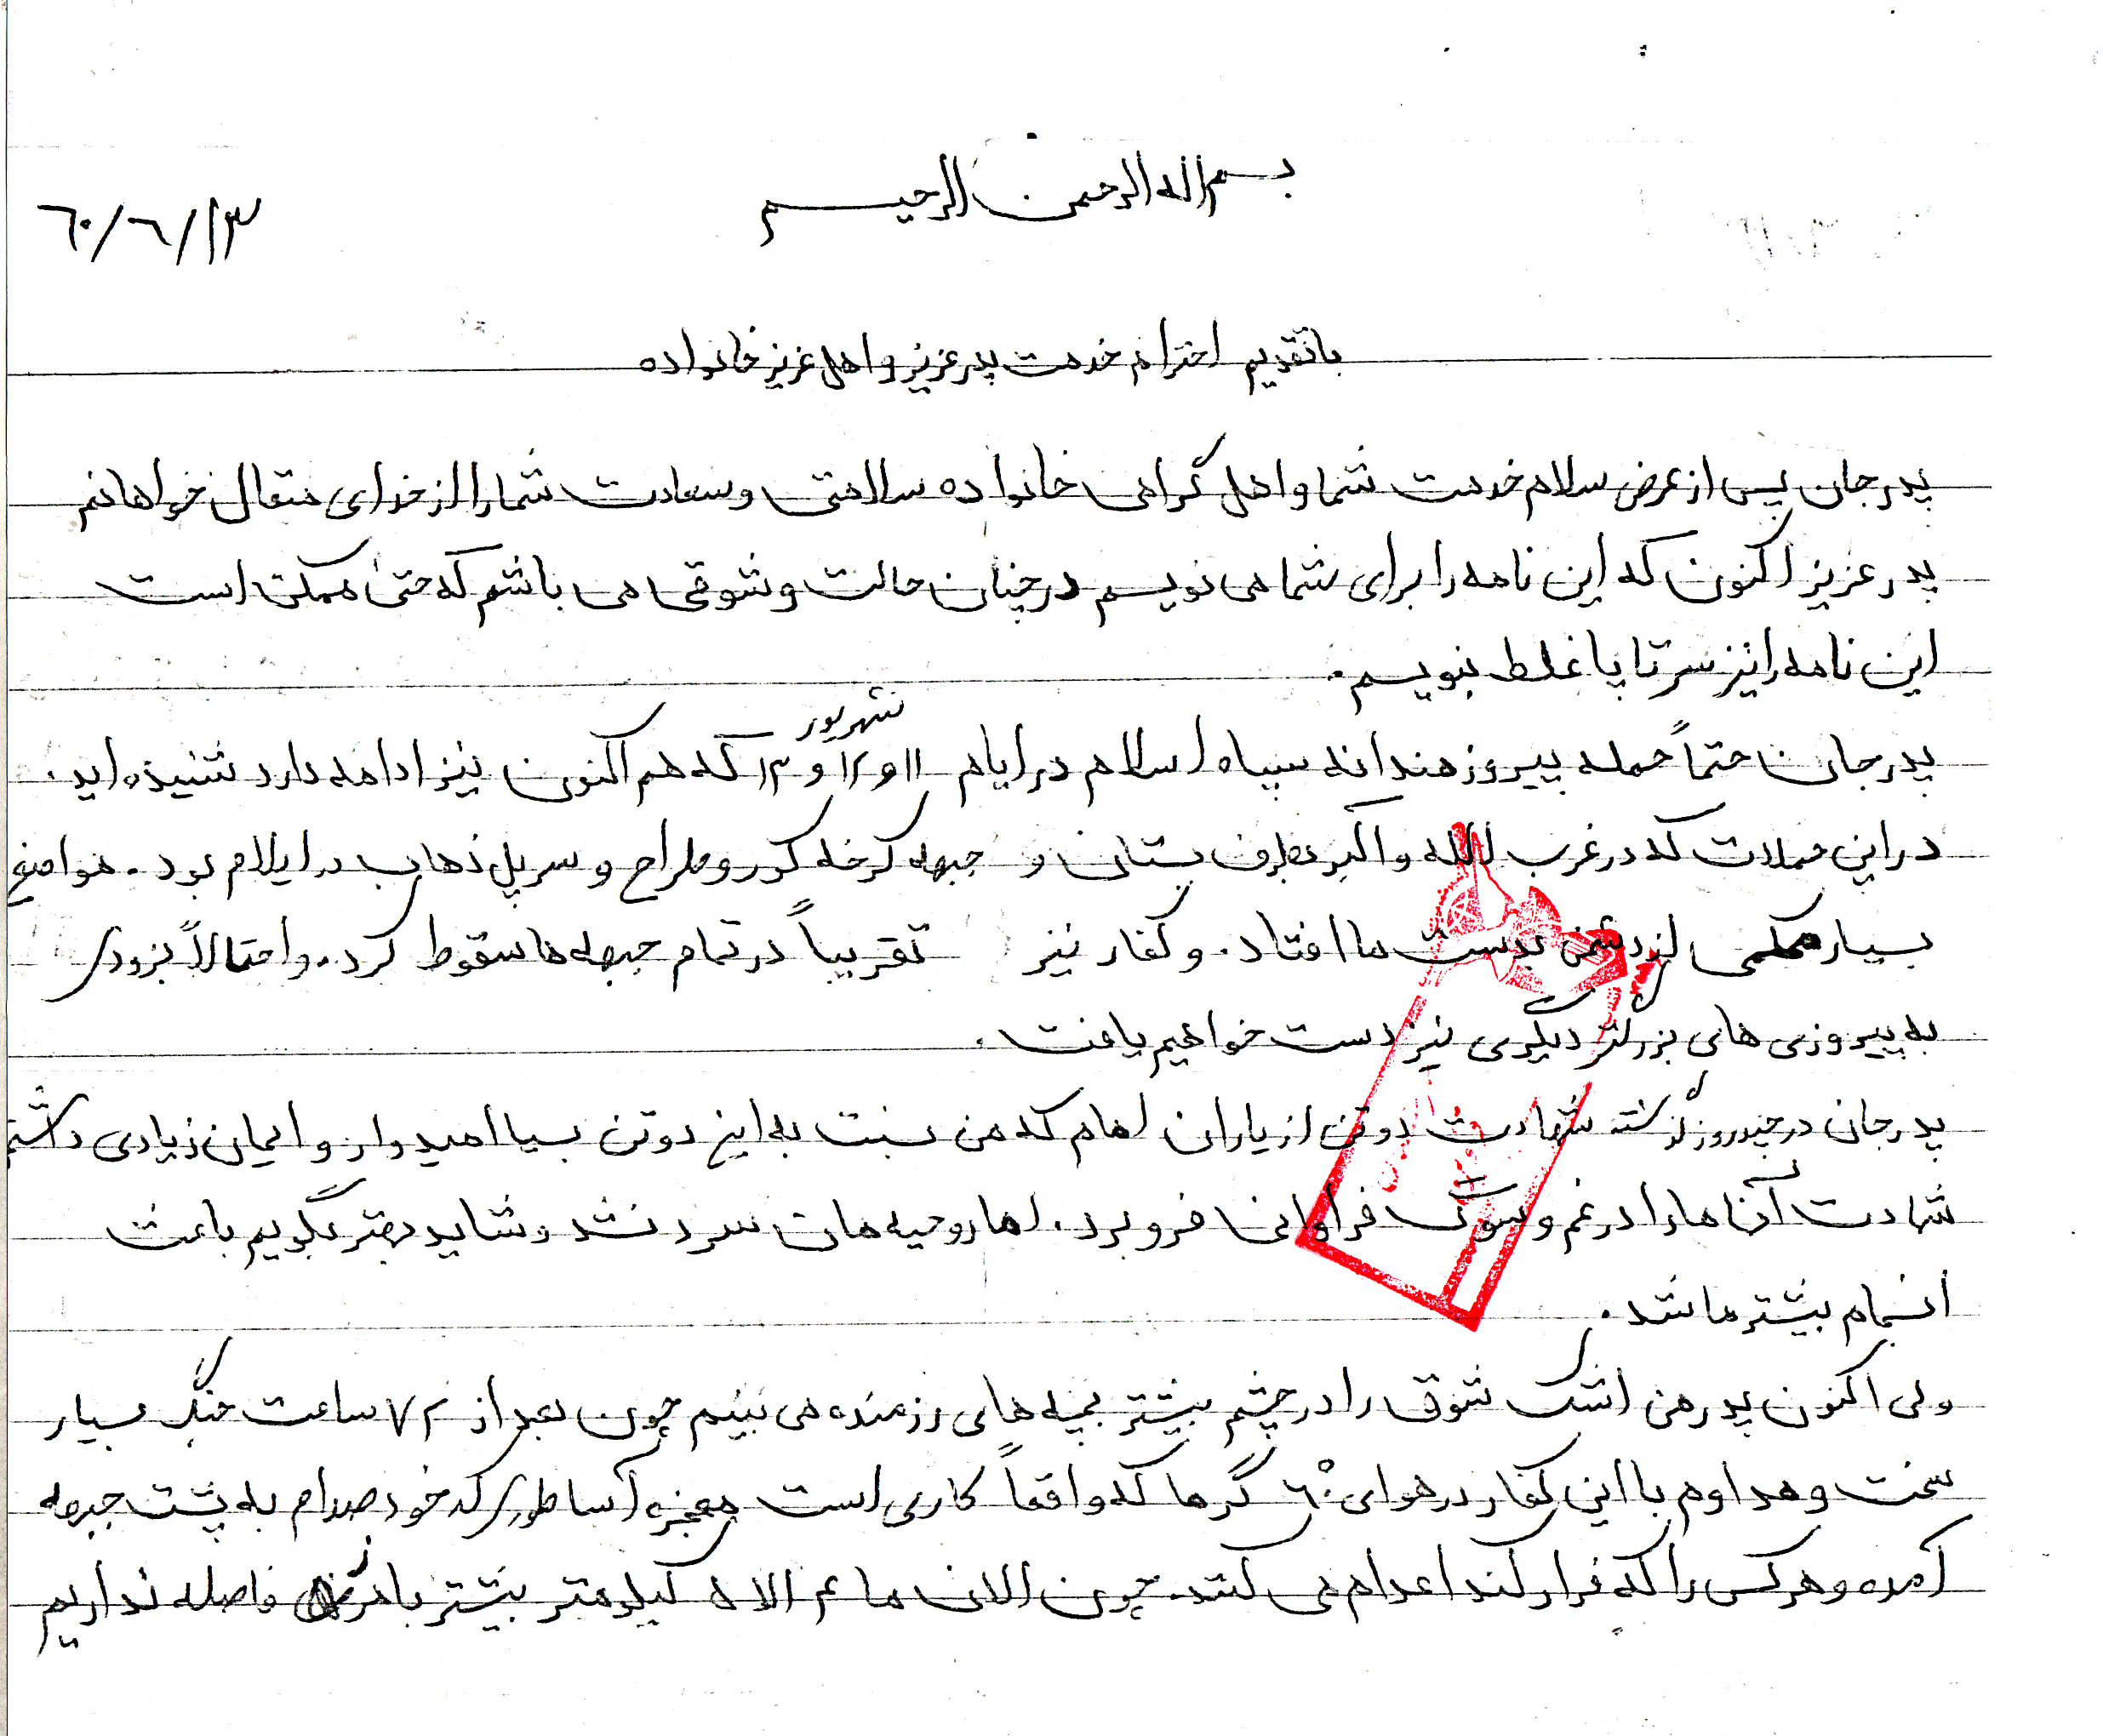 بسم اله الرحمن الرحیم
٦٠/٦/١٣
باتقدیم احترام خدمت پدر عزیز و اهل عزیز خانواده
پدر جان پس از عرض سلام خدمت شما و اهل گرامی خانواده سلامتی و سعادت شما را از خدای متعال خواهانم
پدر عزیز اکنون که این نامه را برای شما می نویسم در چنان حالت و شوقی می باشم که حتی ممکن است
این نامه را نیز سر تا پا غلط بنویسم.
پدر جان حتماً حمله پیروزمندانه سپاه اسلام در ایام ١١ و ١٢ و ١٣ شهریور که هم اکنون نیز ادامه دارد شنیده اید.
در این حملات که در غرب الله و اکبر بطرف بستان و جبهه کرخه کور و طراح و سر پل ذهاب در ایلام بود. مواضع
بسیار محکمی از دشمن بدست ما افتاد. و کفار نیز تقریباً در تمام جبهه ها سقوط کرد. و احتمالاً بزودی
به پیروزی های بزرگتر دیگری نیز دست خواهیم یافت.
پدر جان در چند روز گذشته شهادت دو تن از یاران امام که من نسبت به این دو تن بسیا امیدوار و ایمان زیادی داشتم
شهادت آنها ما را در غم و سوگ فراوانی فرو برد. اما روحیه مان سرد نشد و شاید بهتر بگویم باعث
انسجام بیشتر ما شد.
ولی اکنون پدر من اشک شوق را در چشم بیشتر بچه های رزمنده می بینم چون بعد از ٧٢ ساعت جنگ بسیار
سخت و مداوم با این کفار در هوای ٦٠° گرما که واقعاً کاری است معجزه آسا طوری که خود صدام به پشت جبهه
آمده و هر کس را که فرار کند اعدام می کند. چون الان ما ٤ الا ٥ کیلومتر بیشتر با مرز فاصله نداریم